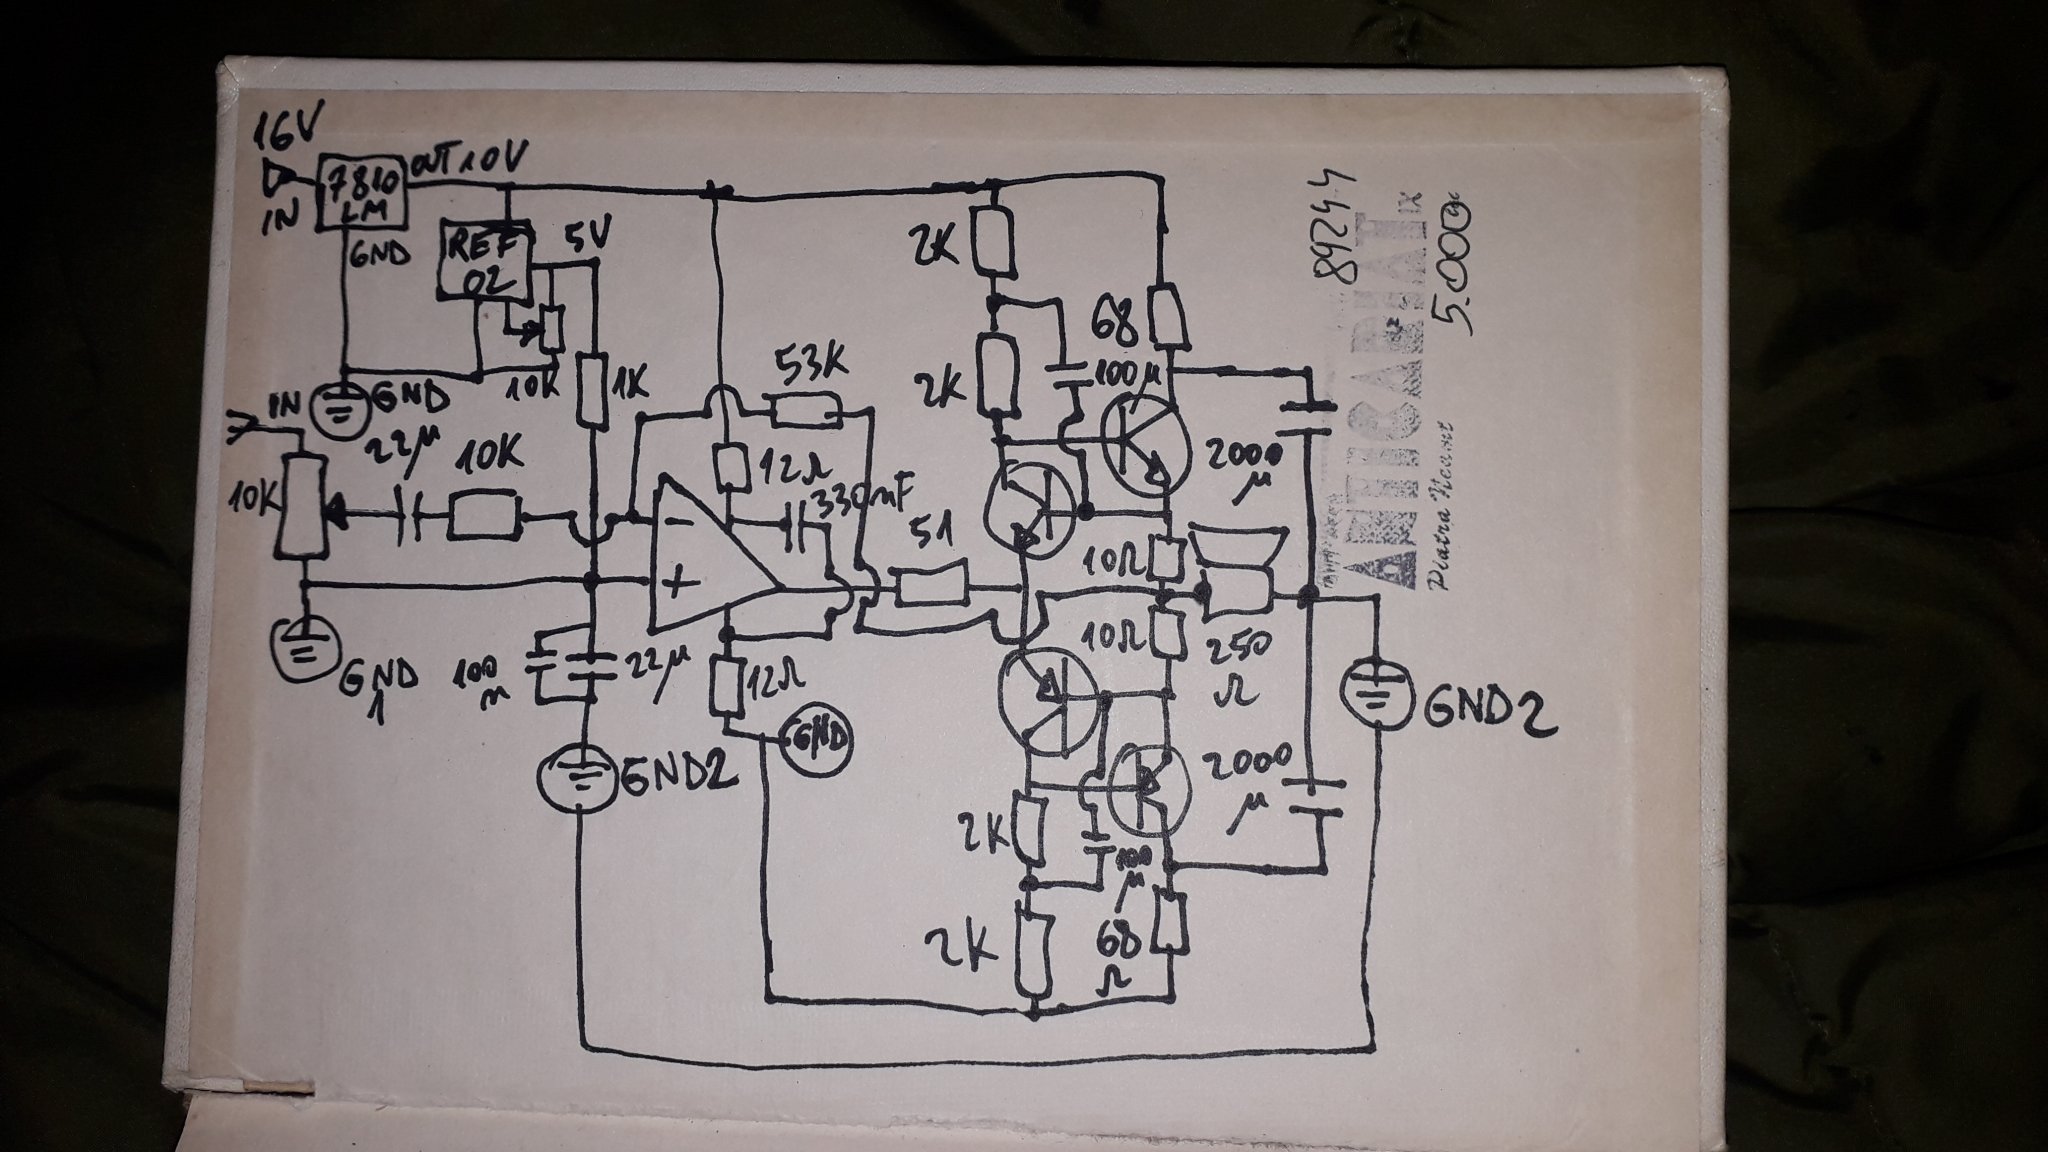 16V
IN
7810
LM
OUT 10V
GND
REF
02
5V
10K
1K
GND
IN
10K
22µ
10K
53K
12Ω
330nF
51
-
+
GND
1
100
n
22µ
12Ω
GND
GND2
2K
2K
100µ
68
10Ω
10Ω
2000
µ
250
Ω
GND2
2000
µ
2K
100
µ
2K
68
Ω
8924.4
5.000
ANTICARIAT
IX
Piatra Neamt